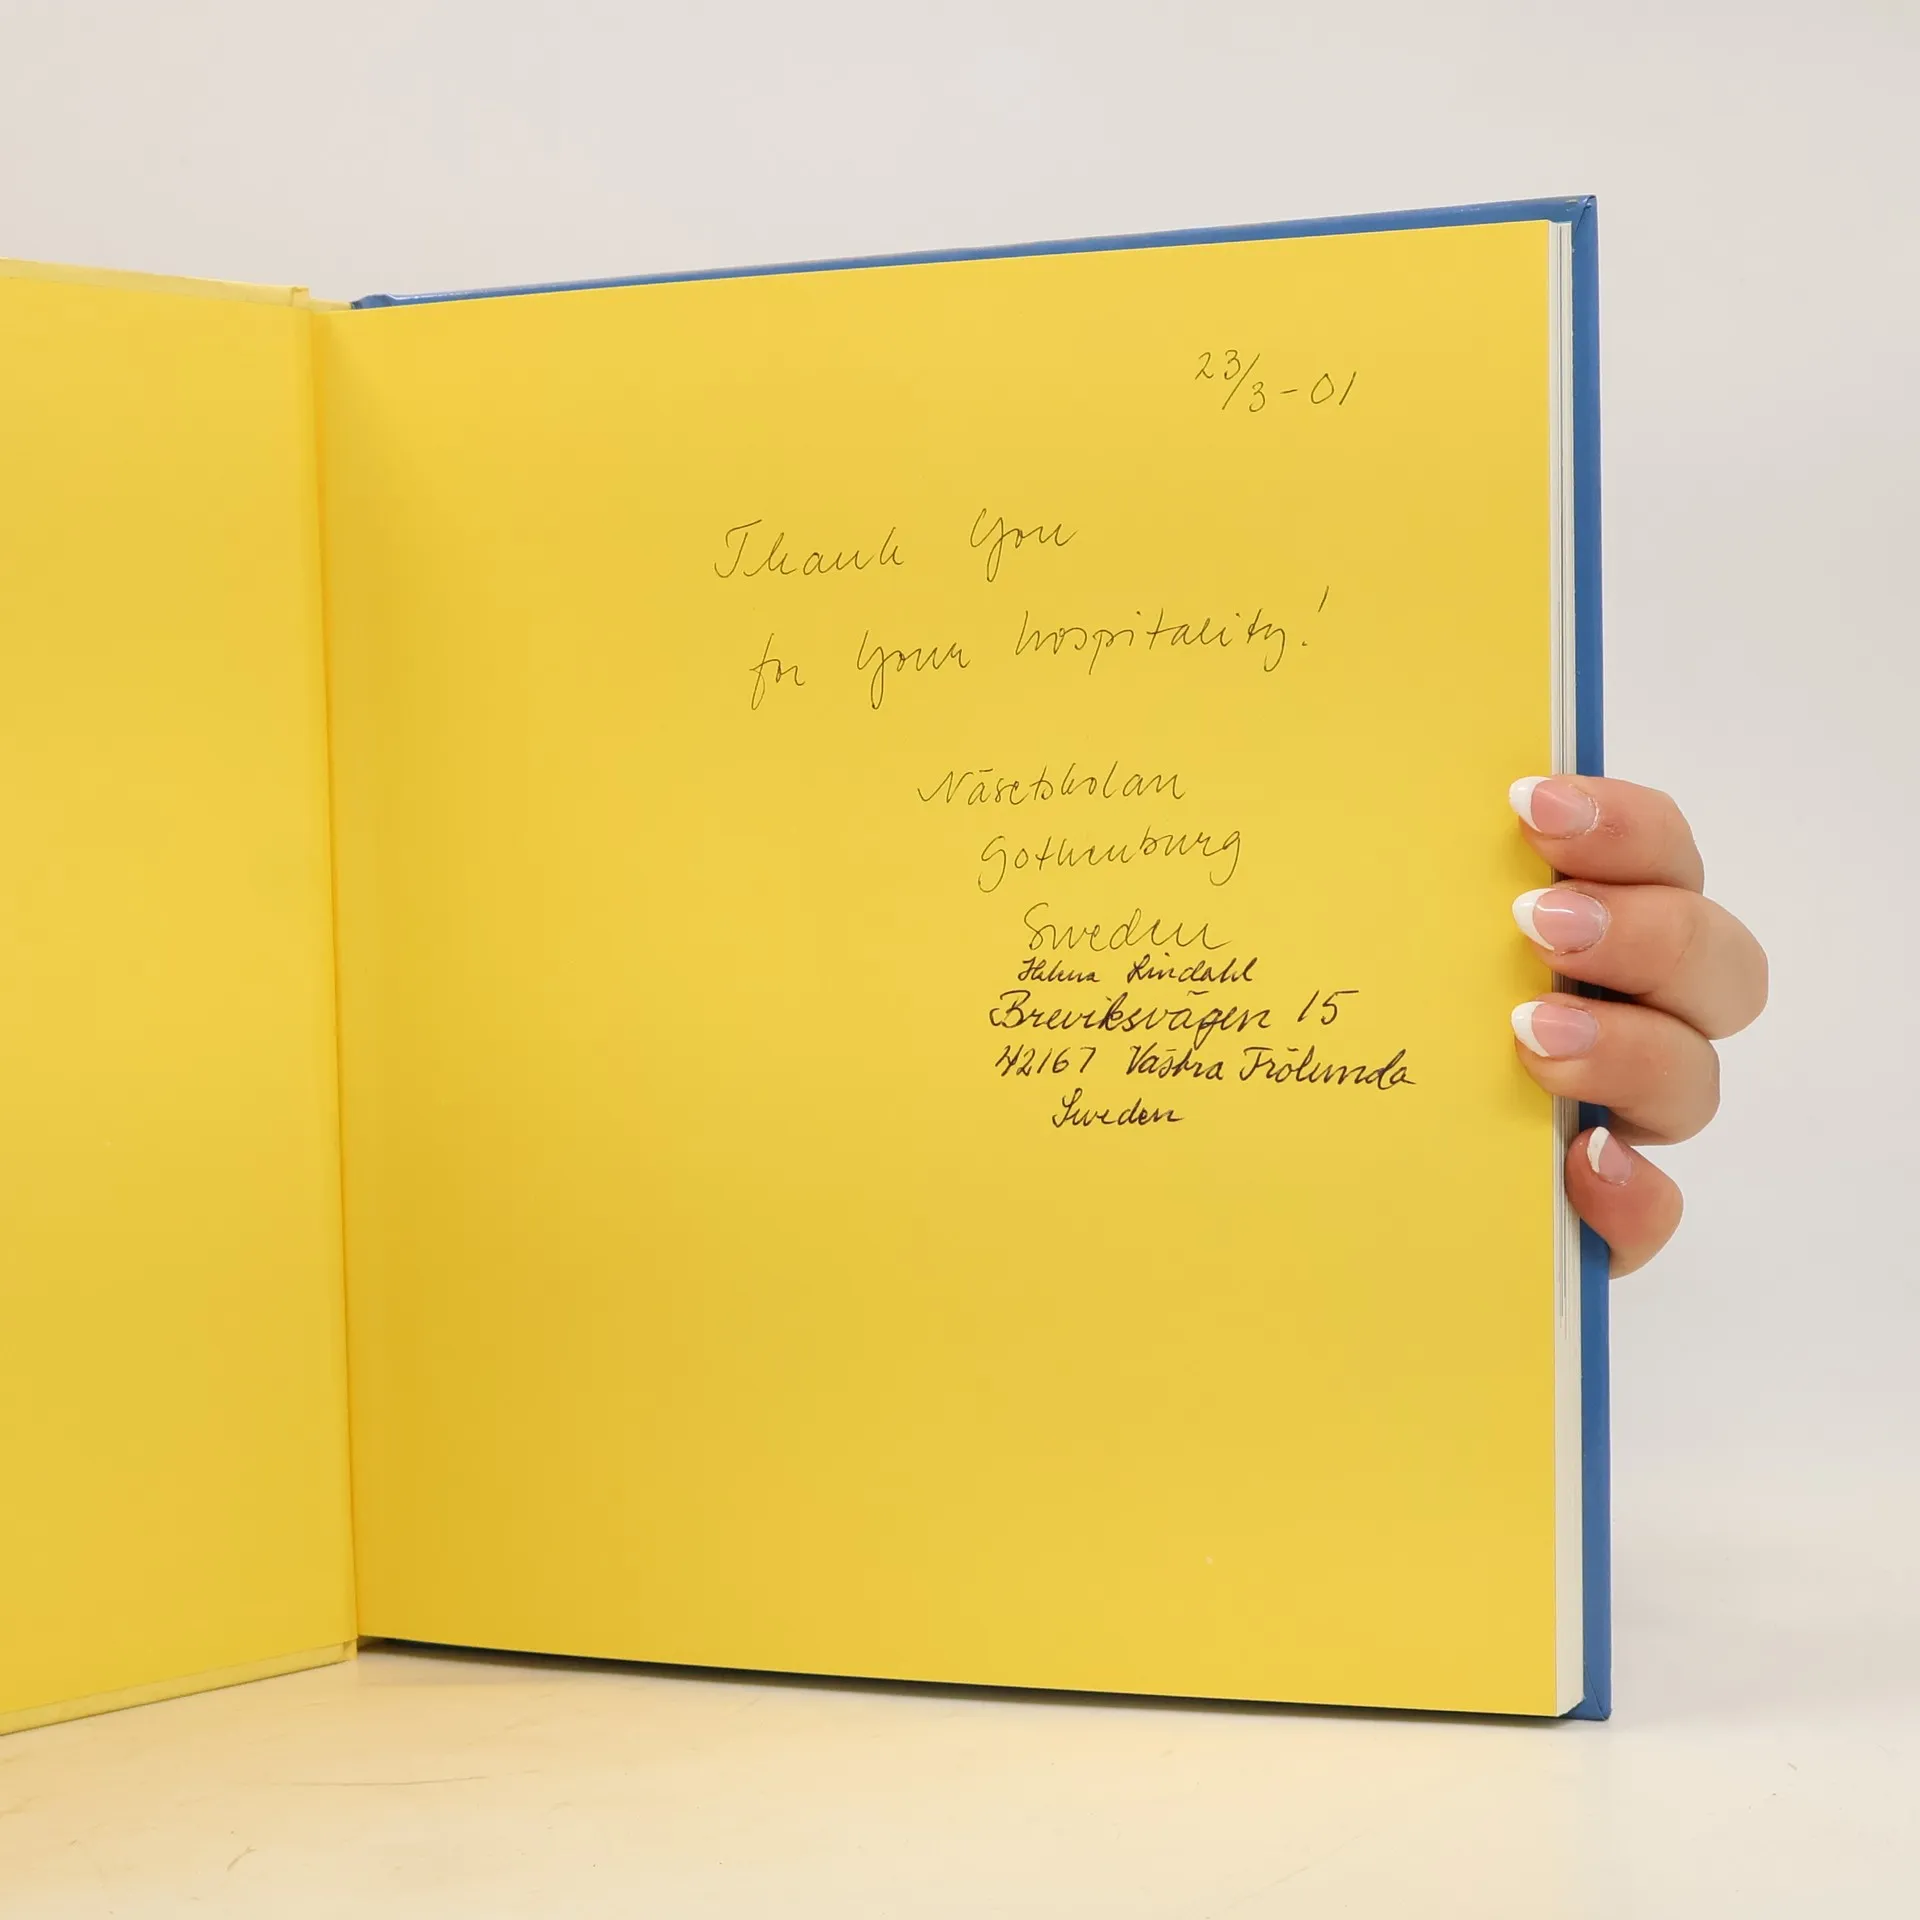 23/3-01
Thank You
for Your hospitality!
Näsetskolan
Gothenburg
Sweden
Helena Lindahl
Breviksvägen 15
42167 Västra Frölunda
Sweden